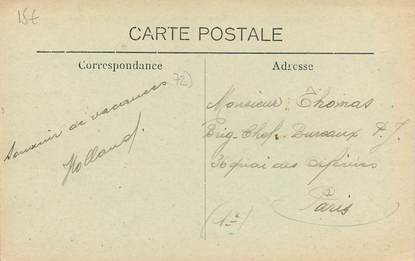 15€
CARTE POSTALE
Correspondance
Adresse
72)
Souvenir de vacances
Holland.
Monsieur Thomas
Brig-Chef. Bureaux P. J.
36 quai des Orfèvres
Paris
(1er)